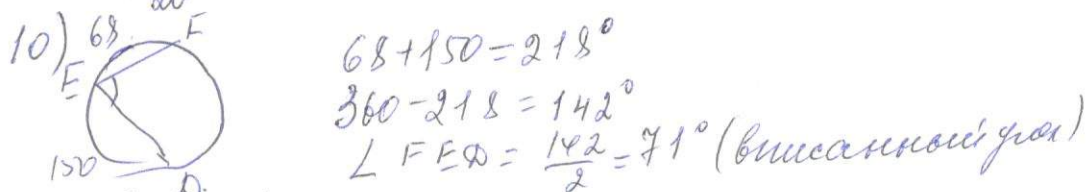 10) 68 F
E
150
D
68+150=218°
360-218=142°
∠ FED = 142/2 = 71° (вписанный угол)